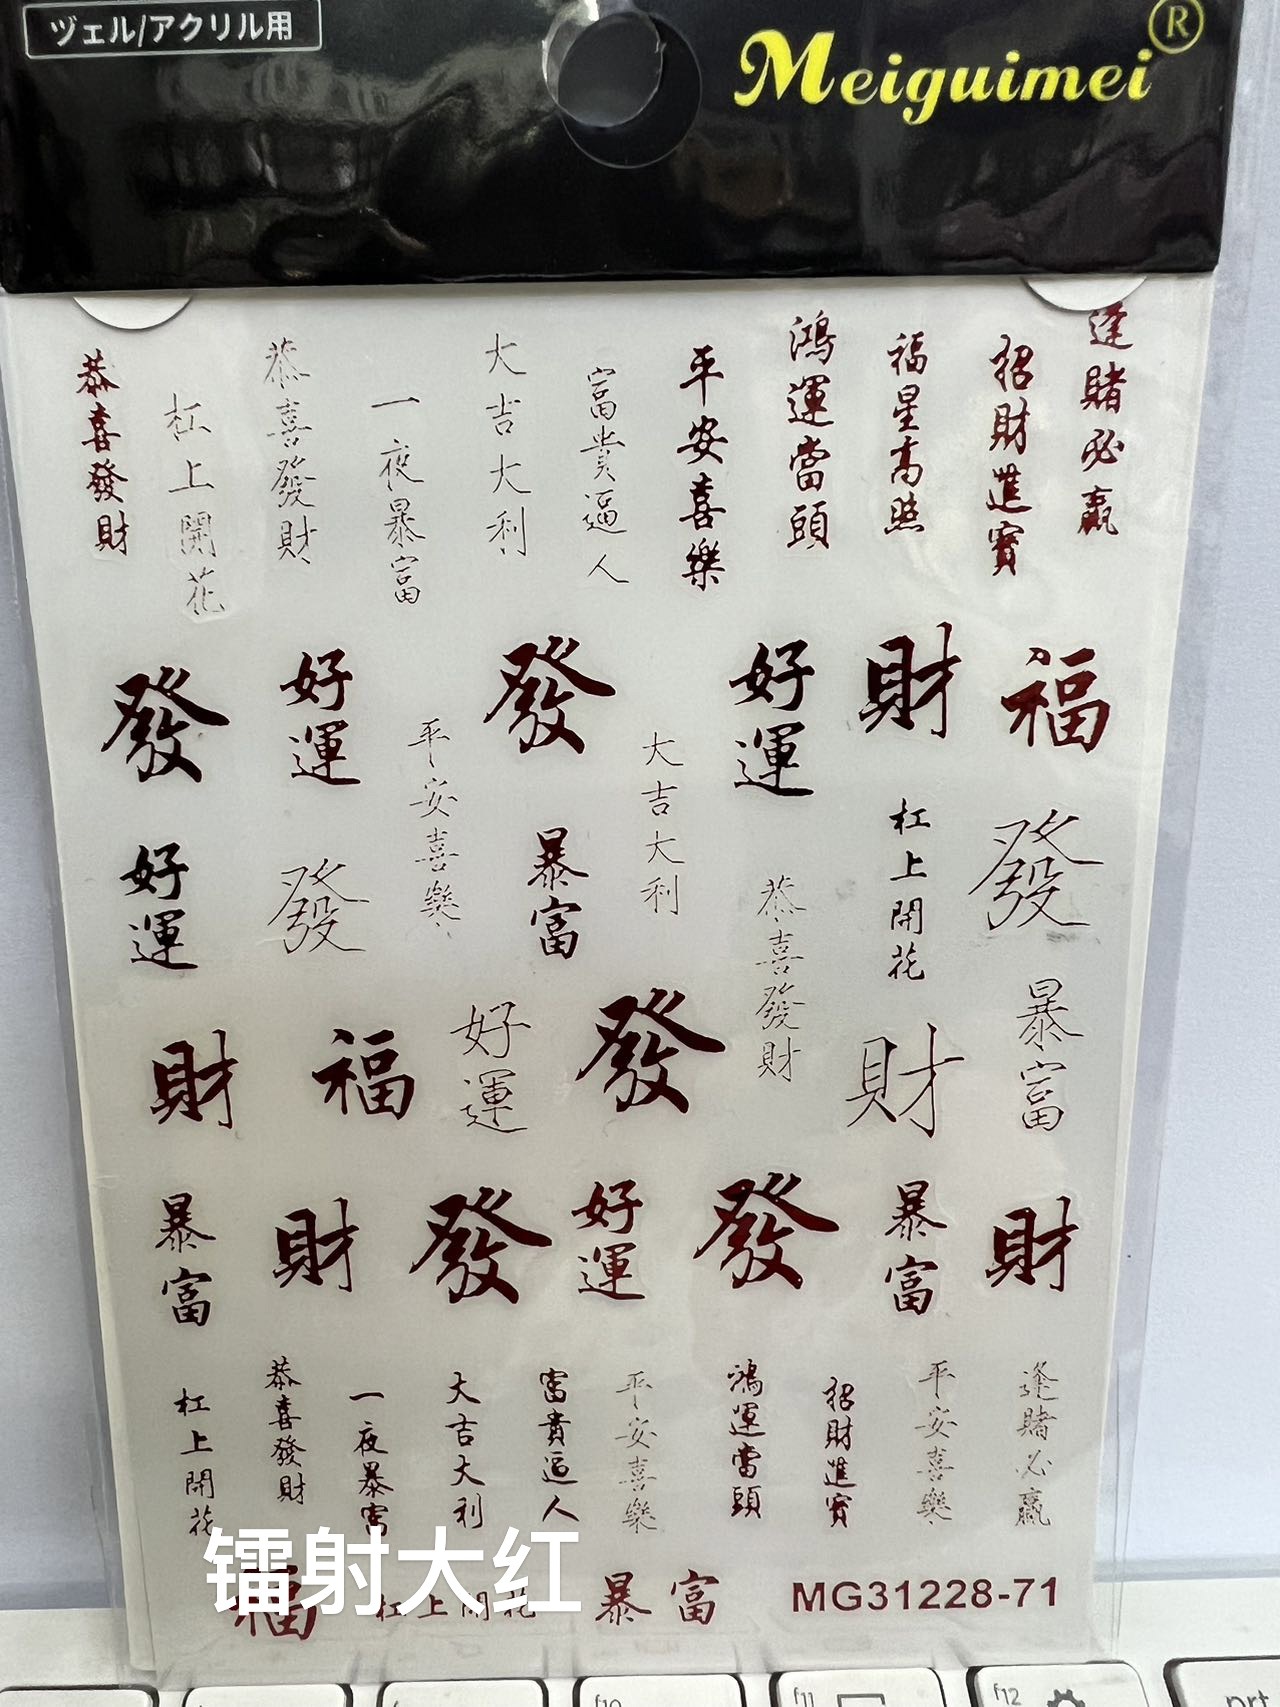 ヅェル/アクリル用
Meiguimei®
恭喜發財
杠上開花
恭喜發財
一夜暴富
大吉大利
富貴逼人
平安喜樂
鴻運當頭
福星高照
招財進寶
逢賭必贏
發
好運
平安喜樂
發
大吉大利
好運
財
福
好運
發
暴富
恭喜發財
杠上開花
發
財
福
好運
發
財
暴富
暴富
財
發
好運
發
暴富
財
杠上開花
恭喜發財
一夜暴富
大吉大利
富貴逼人
平安喜樂
鴻運當頭
招財進寶
平安喜樂
逢賭必贏
镭射大红
福
杠上開花
暴富
MG31228-71
f10
f11
f12
prt